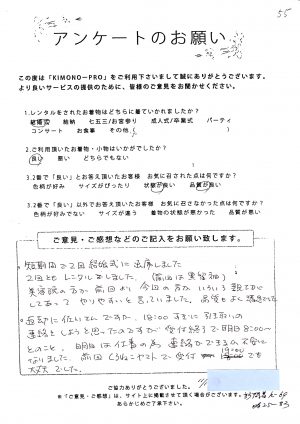 55
アンケートのお願い
この度は「KIMONO-PRO」をご利用下さいまして誠にありがとうございます。
より良いサービスの提供のために、皆様のご意見をお聞かせください。
1.レンタルをされたお着物はどちらに着ていかれましたか?
結婚式 結納 七五三/お宮参り 成人式/卒業式 パーティ
コンサート お食事 その他( )
2.ご利用頂いたお着物・小物はいかがでしたか?
良い 悪い どちらでもない
3.2番で「良い」とお答え頂いたお客様 お気に召された点は何ですか?
色柄が好み サイズがぴったり 状態が良い 品質が良い
3.2番で「良い」以外でお答え頂いたお客様 お気に召さなかった点は何ですか?
色柄が好みでない サイズが違う 着物の状態が悪かった 品質が悪い
ご意見・ご感想などのご記入をお願い致します。
短期間で2回結婚式に出席しました
2回ともレンタルしました。(前回は黒留袖)
美容院の方が前回も今回の方も
してあって やりやすいと言っていました。品質もよく
返却に佐いてですが、18:00すぎに引取りの
連絡をしようと思ったのですが 受付終了で明日8:00~
とのこと。明日は仕事の為 連絡できるか不安に
なりました。前回
大丈夫でした。
ご協力ありがとうございました。
※「ご意見・ご感想」は、サイト上に掲載させて頂く場合がございます。
あらかじめご了承下さい。